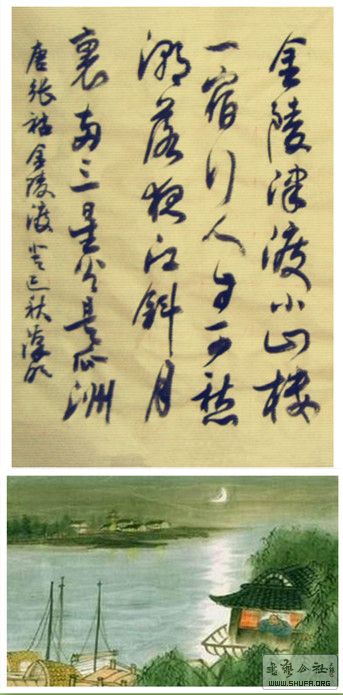 金陵津渡小山楼
一宿行人自可愁
潮落夜江斜月
裏两三星火是瓜洲
唐张祜金陵渡癸巳秋
书艺公社
WWW.SHUFA.ORG